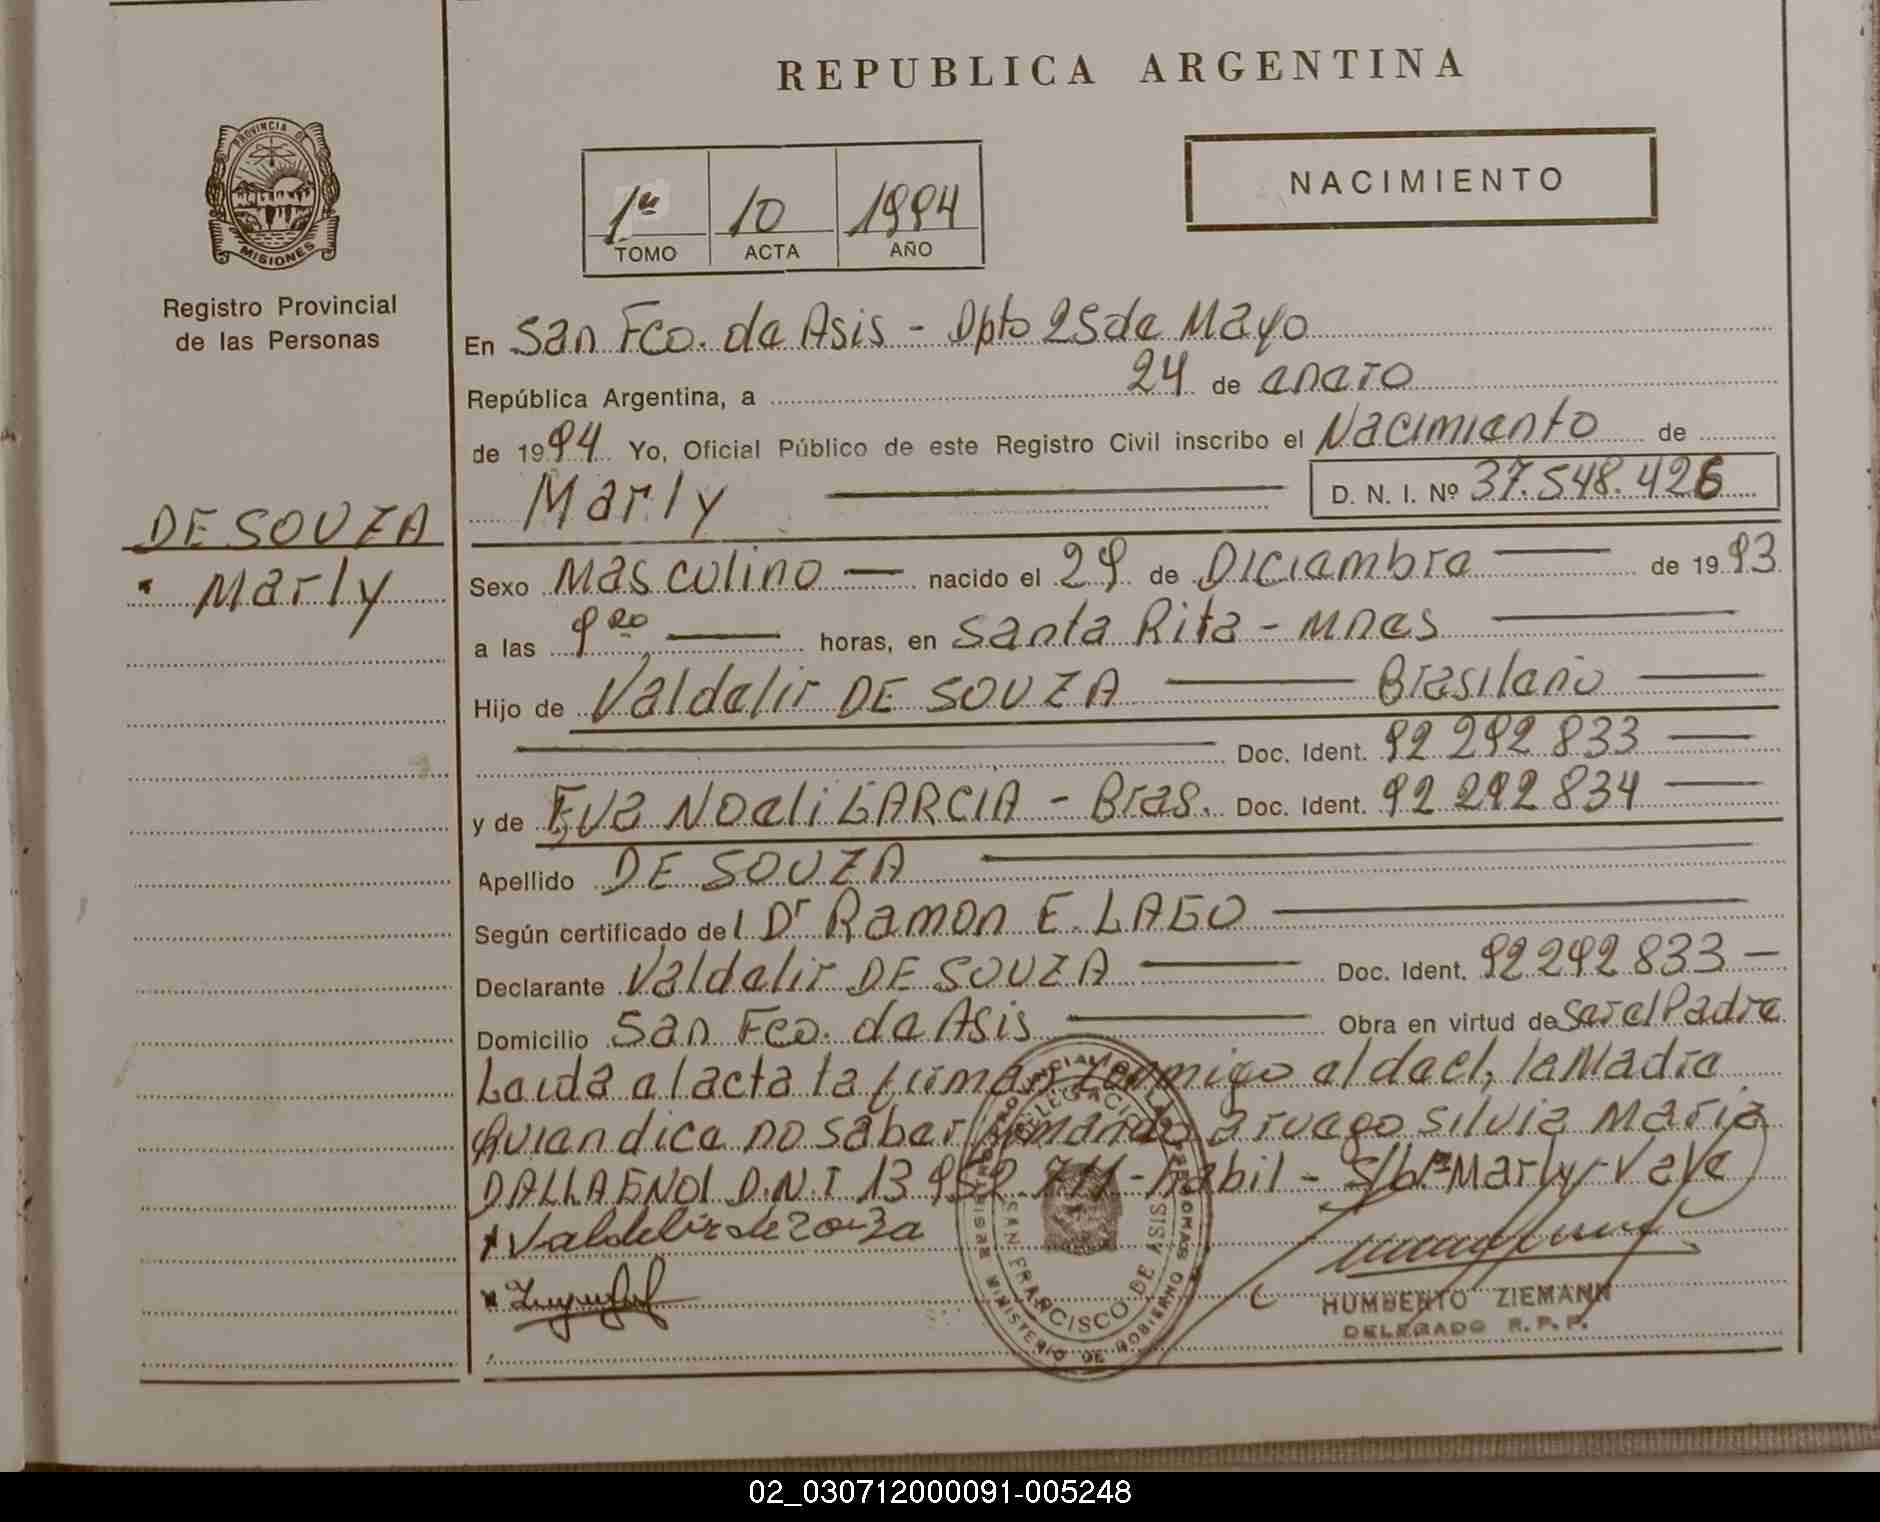 REPUBLICA ARGENTINA
PROVINCIA DE
MISIONES
Registro Provincial
de las Personas
NACIMIENTO
1º 10 1994
TOMO ACTA AÑO
En San Fco. de Asis - Dpto 25 de Mayo
República Argentina, a 24 de enero
de 1994 Yo, Oficial Público de este Registro Civil inscribo el Nacimiento de
Marly D. N. I. Nº 37.548.426
DE SOUZA
Marly
Sexo Masculino nacido el 29 de Diciembre de 1993
a las 9 20 horas, en Santa Rita - Mnes
Hijo de Valdelir DE SOUZA Brasileño
Doc. Ident. 92 292 833
y de Eva Noeli GARCIA - Bras. Doc. Ident. 92 292 834
Apellido DE SOUZA
Según certificado del Dr Ramon E. LAGO
Declarante Valdelir DE SOUZA Doc. Ident. 92 292 833 -
Domicilio San Fco. de Asis Obra en virtud de ser el Padre
Leida al acta la firman conmigo el decl, la Madre
Quien dice no saber firmando a ruego Silvia Maria
DALLAGNOL D.N.I 13 952 711 - habil - S/bº Marly - Vale
Valdelir de Souza
REGISTRO PROVINCIAL DE LAS PERSONAS
DELEGACION
SAN FRANCISCO DE ASIS
MINISTERIO DE GOBIERNO
HUMBERTO ZIEMANN
DELEGADO R. P. P.
02_030712000091-005248